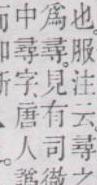 也。服注云尋之
爲尋。見有司徹
中尋字。唐人譌